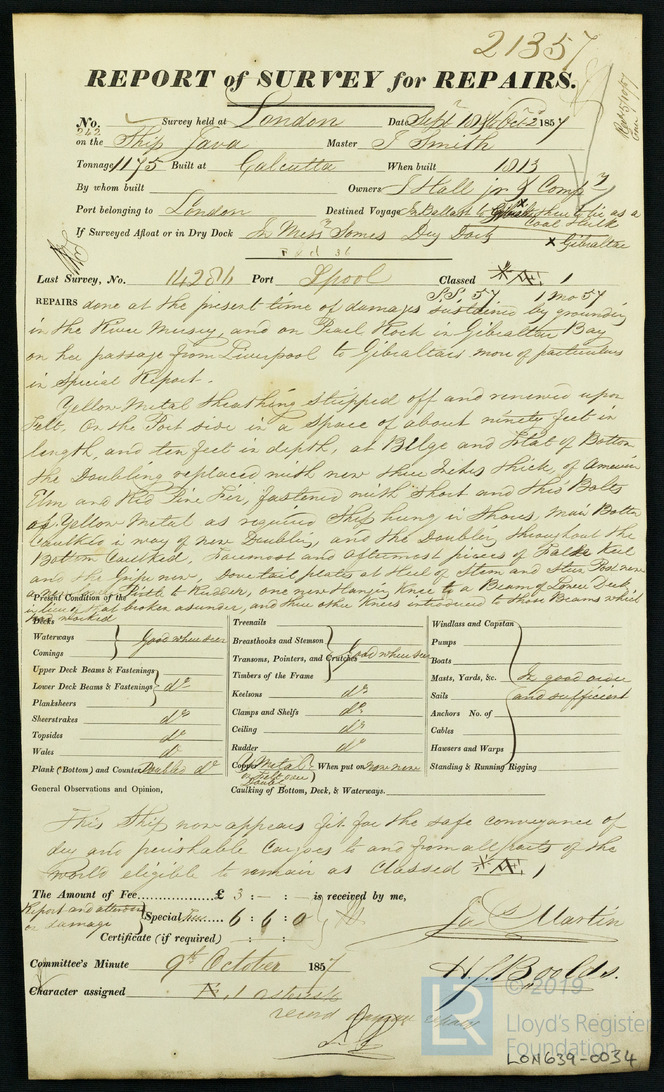 21357
REPORT of SURVEY for REPAIRS.
No. 242 Survey held at London Date Sept 18 to Oct 2 1857
on the Ship Java Master J Smith
Tonnage 1175 Built at Calcutta When built 1813
By whom built Owners J Hall jr & Compy
Port belonging to London Destined Voyage In Ballast to then to lie as a
Coal Hulk
If Surveyed Afloat or in Dry Dock In Messrs Somes Dry Dock x Gibraltar
Last Survey, No. 14284 Port Lpool Classed A 1
S.S. 57 1 Mo 57
REPAIRS done at the present time of damages sustained by grounding
in the River Mersey, and on Pearl Rock in Gibraltar Bay
on her passage from Liverpool to Gibraltar, more of particulars
in Special Report.
Yellow Metal Sheathing stripped off and renewed upon
Felt. On the Port side in a space of about ninety feet in
length, and ten feet in depth, at Bilge and Flat of Bottom
the Doubling replaced with new three Inches thick, of American
Elm and Red Pine Fir, fastened with Short and thro' Bolts
of Yellow Metal as required Ship hung in Shores, Main Bottom
Caulked in way of new Doubling, and the Doubling throughout the
Bottom Caulked, Foremost and aftermost pieces of False Keel
and the Gripe new, Dovetail plates at Heel of Stem and Stern Post new
to Rudder, one new Hanging Knee to a Beam of Lower Deck
in lieu of that broken asunder, and three other Knees introduced to those Beams which
had worked
Present Condition of the
Decks
Waterways Good where seen
Comings
Upper Deck Beams & Fastenings
Lower Deck Beams & Fastenings do
Planksheers
Sheerstrakes do
Topsides do
Wales do
Plank (Bottom) and Counter Doubled do
Treenails
Breasthooks and Stemson
Transoms, Pointers, and Crutches Good where seen
Timbers of the Frame
Keelsons do
Clamps and Shelfs do
Ceiling do
Rudder do
Copper Y Metal When put on now new
on Felt over
Doubg
Caulking of Bottom, Deck, & Waterways.
Windlass and Capstan
Pumps
Boats
Masts, Yards, &c. In good order
Sails and sufficient
Anchors No. of
Cables
Hawsers and Warps
Standing & Running Rigging
General Observations and Opinion,
This Ship now appears fit for the safe conveyance of
dry and perishable Cargoes to and from all parts of the
world eligible to remain as Classed A 1
The Amount of Fee £ 3 : — : — is received by me,
Report and attendance
on damage
Special fee 6 : 6 : 0
Certificate (if required) : :
Jas Martin
Committee's Minute 9th October 1857
H. J. Boolds.
Character assigned A 1 asterisk
record
© 2019
LR
Lloyd's Register
Foundation
LON639-0034